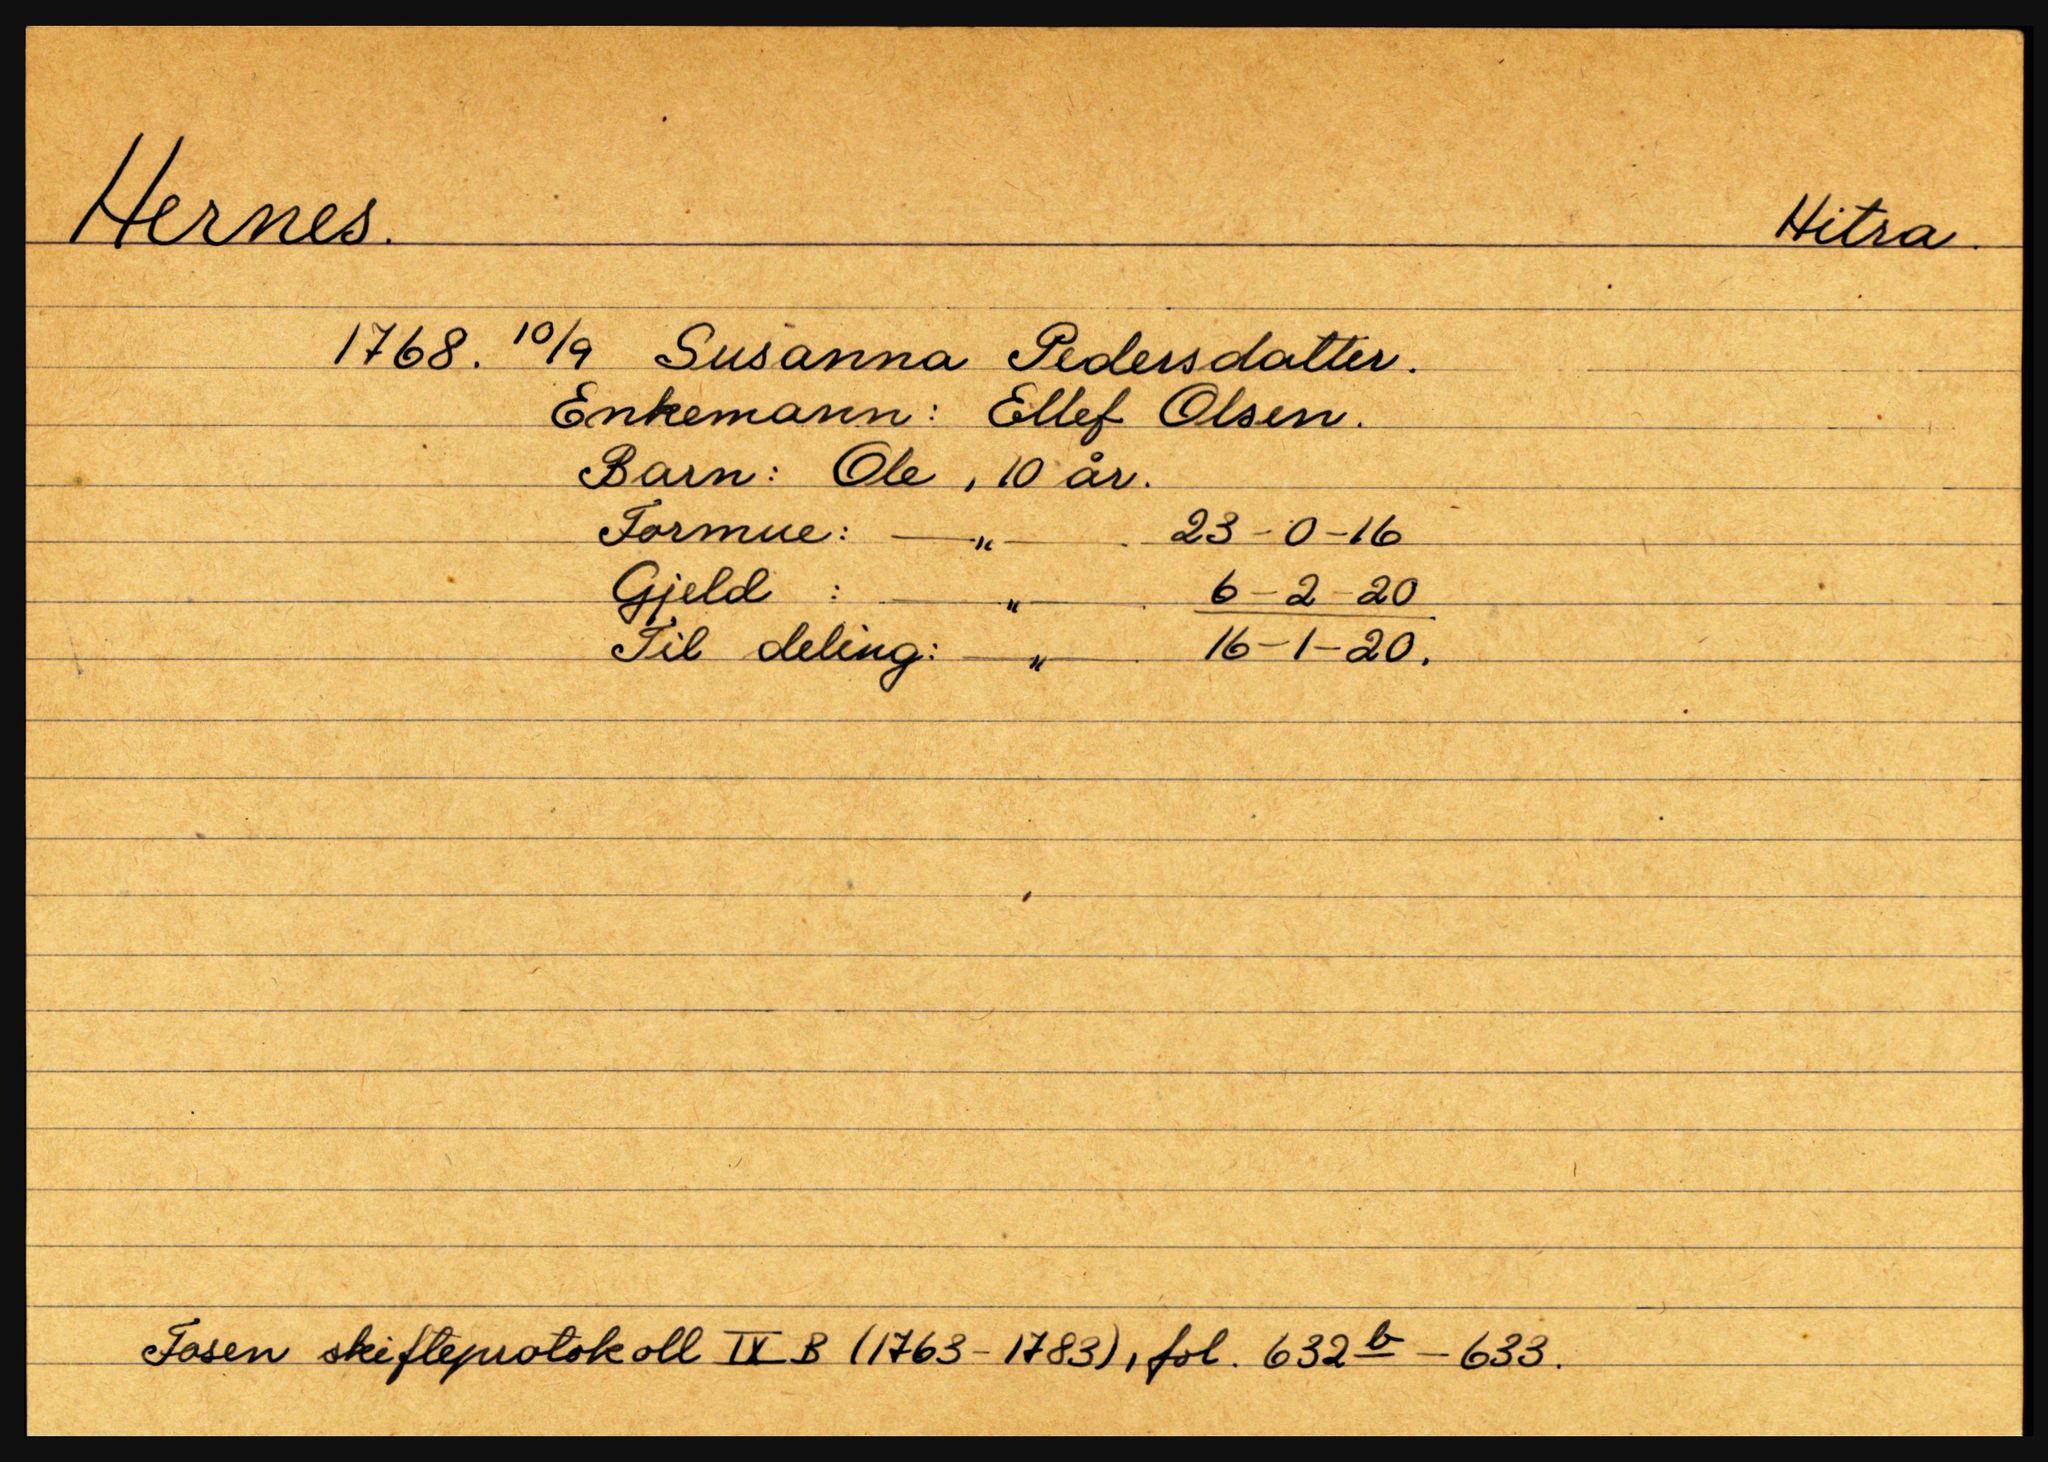 Hernes. Hitra.
1768. 10/9 Susanna Pedersdatter.
Enkemann: Ellef Olsen.
Barn: Ole, 10 år.
Formue: —"— 23-0-16
Gjeld : —"— 6-2-20
Til deling: —"— 16-1-20.
Fosen skifteprotokoll IX B (1763-1783), fol. 632b - 633.